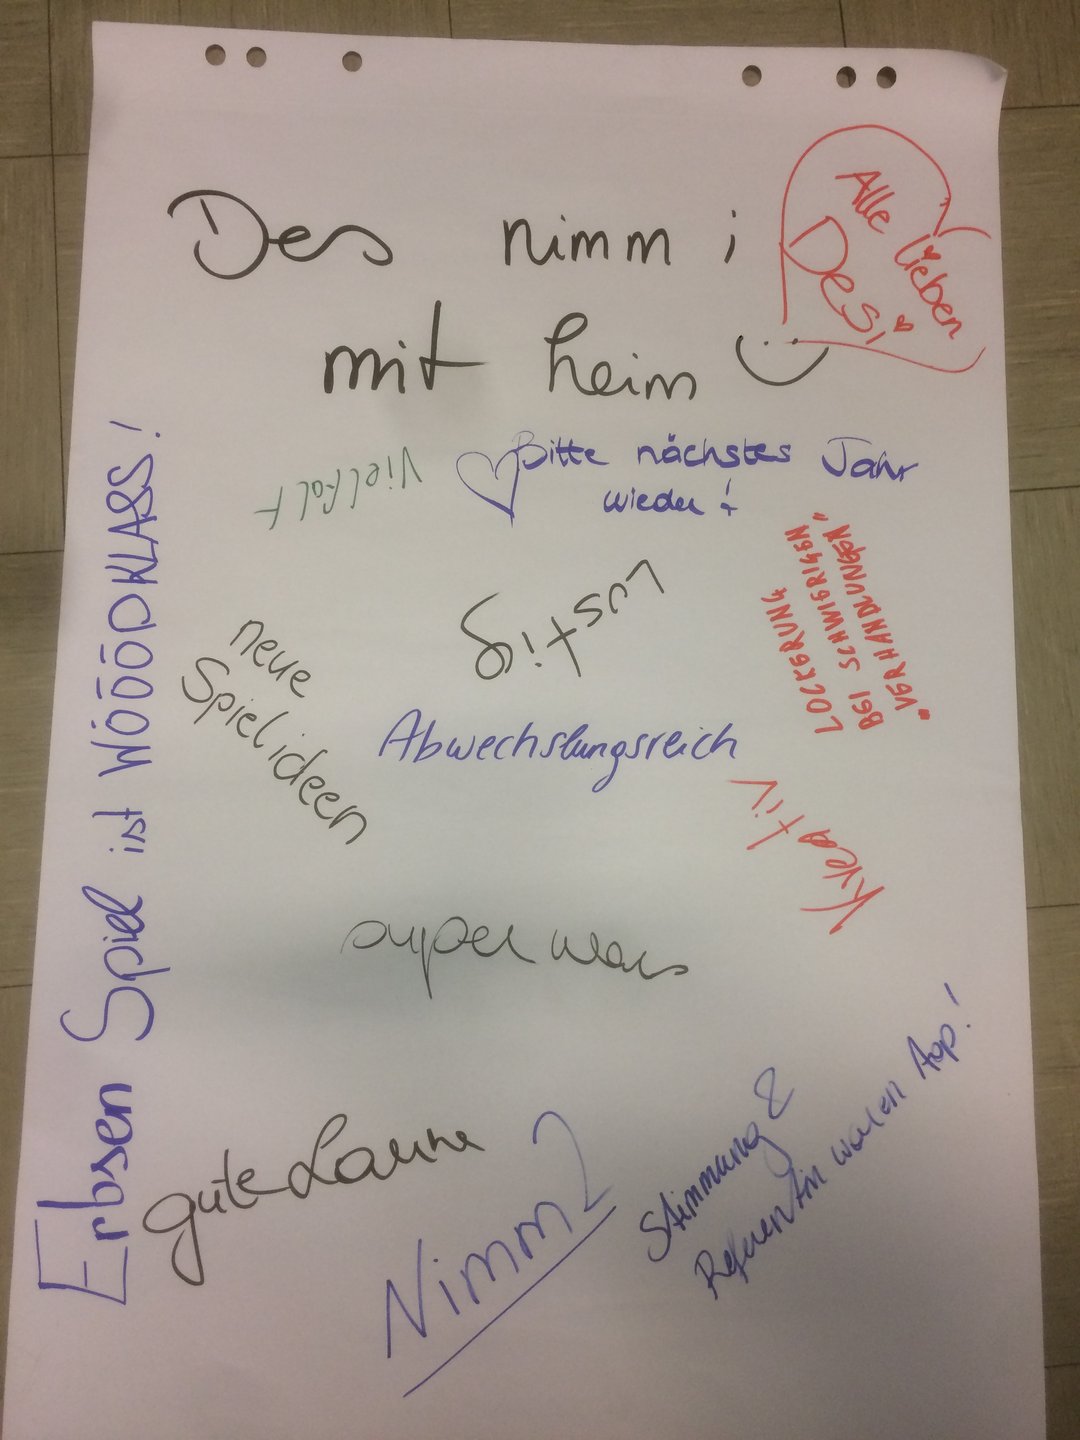 Des nimm i
mit heim
Alle lieben
Desi
Vielfalt
Bitte nächstes Jahr
wieder!
Lustig
LOCKERUNG
BEI SCHWIERIGEN
"VERHANDLUNGEN"
neue
Spielideen
Abwechslungsreich
Kreativ
super wars
Erbsen Spiel ist WÖÖÖDKLASS!
gute Laune
Nimm 2
Stimmung &
Referentin waren top!